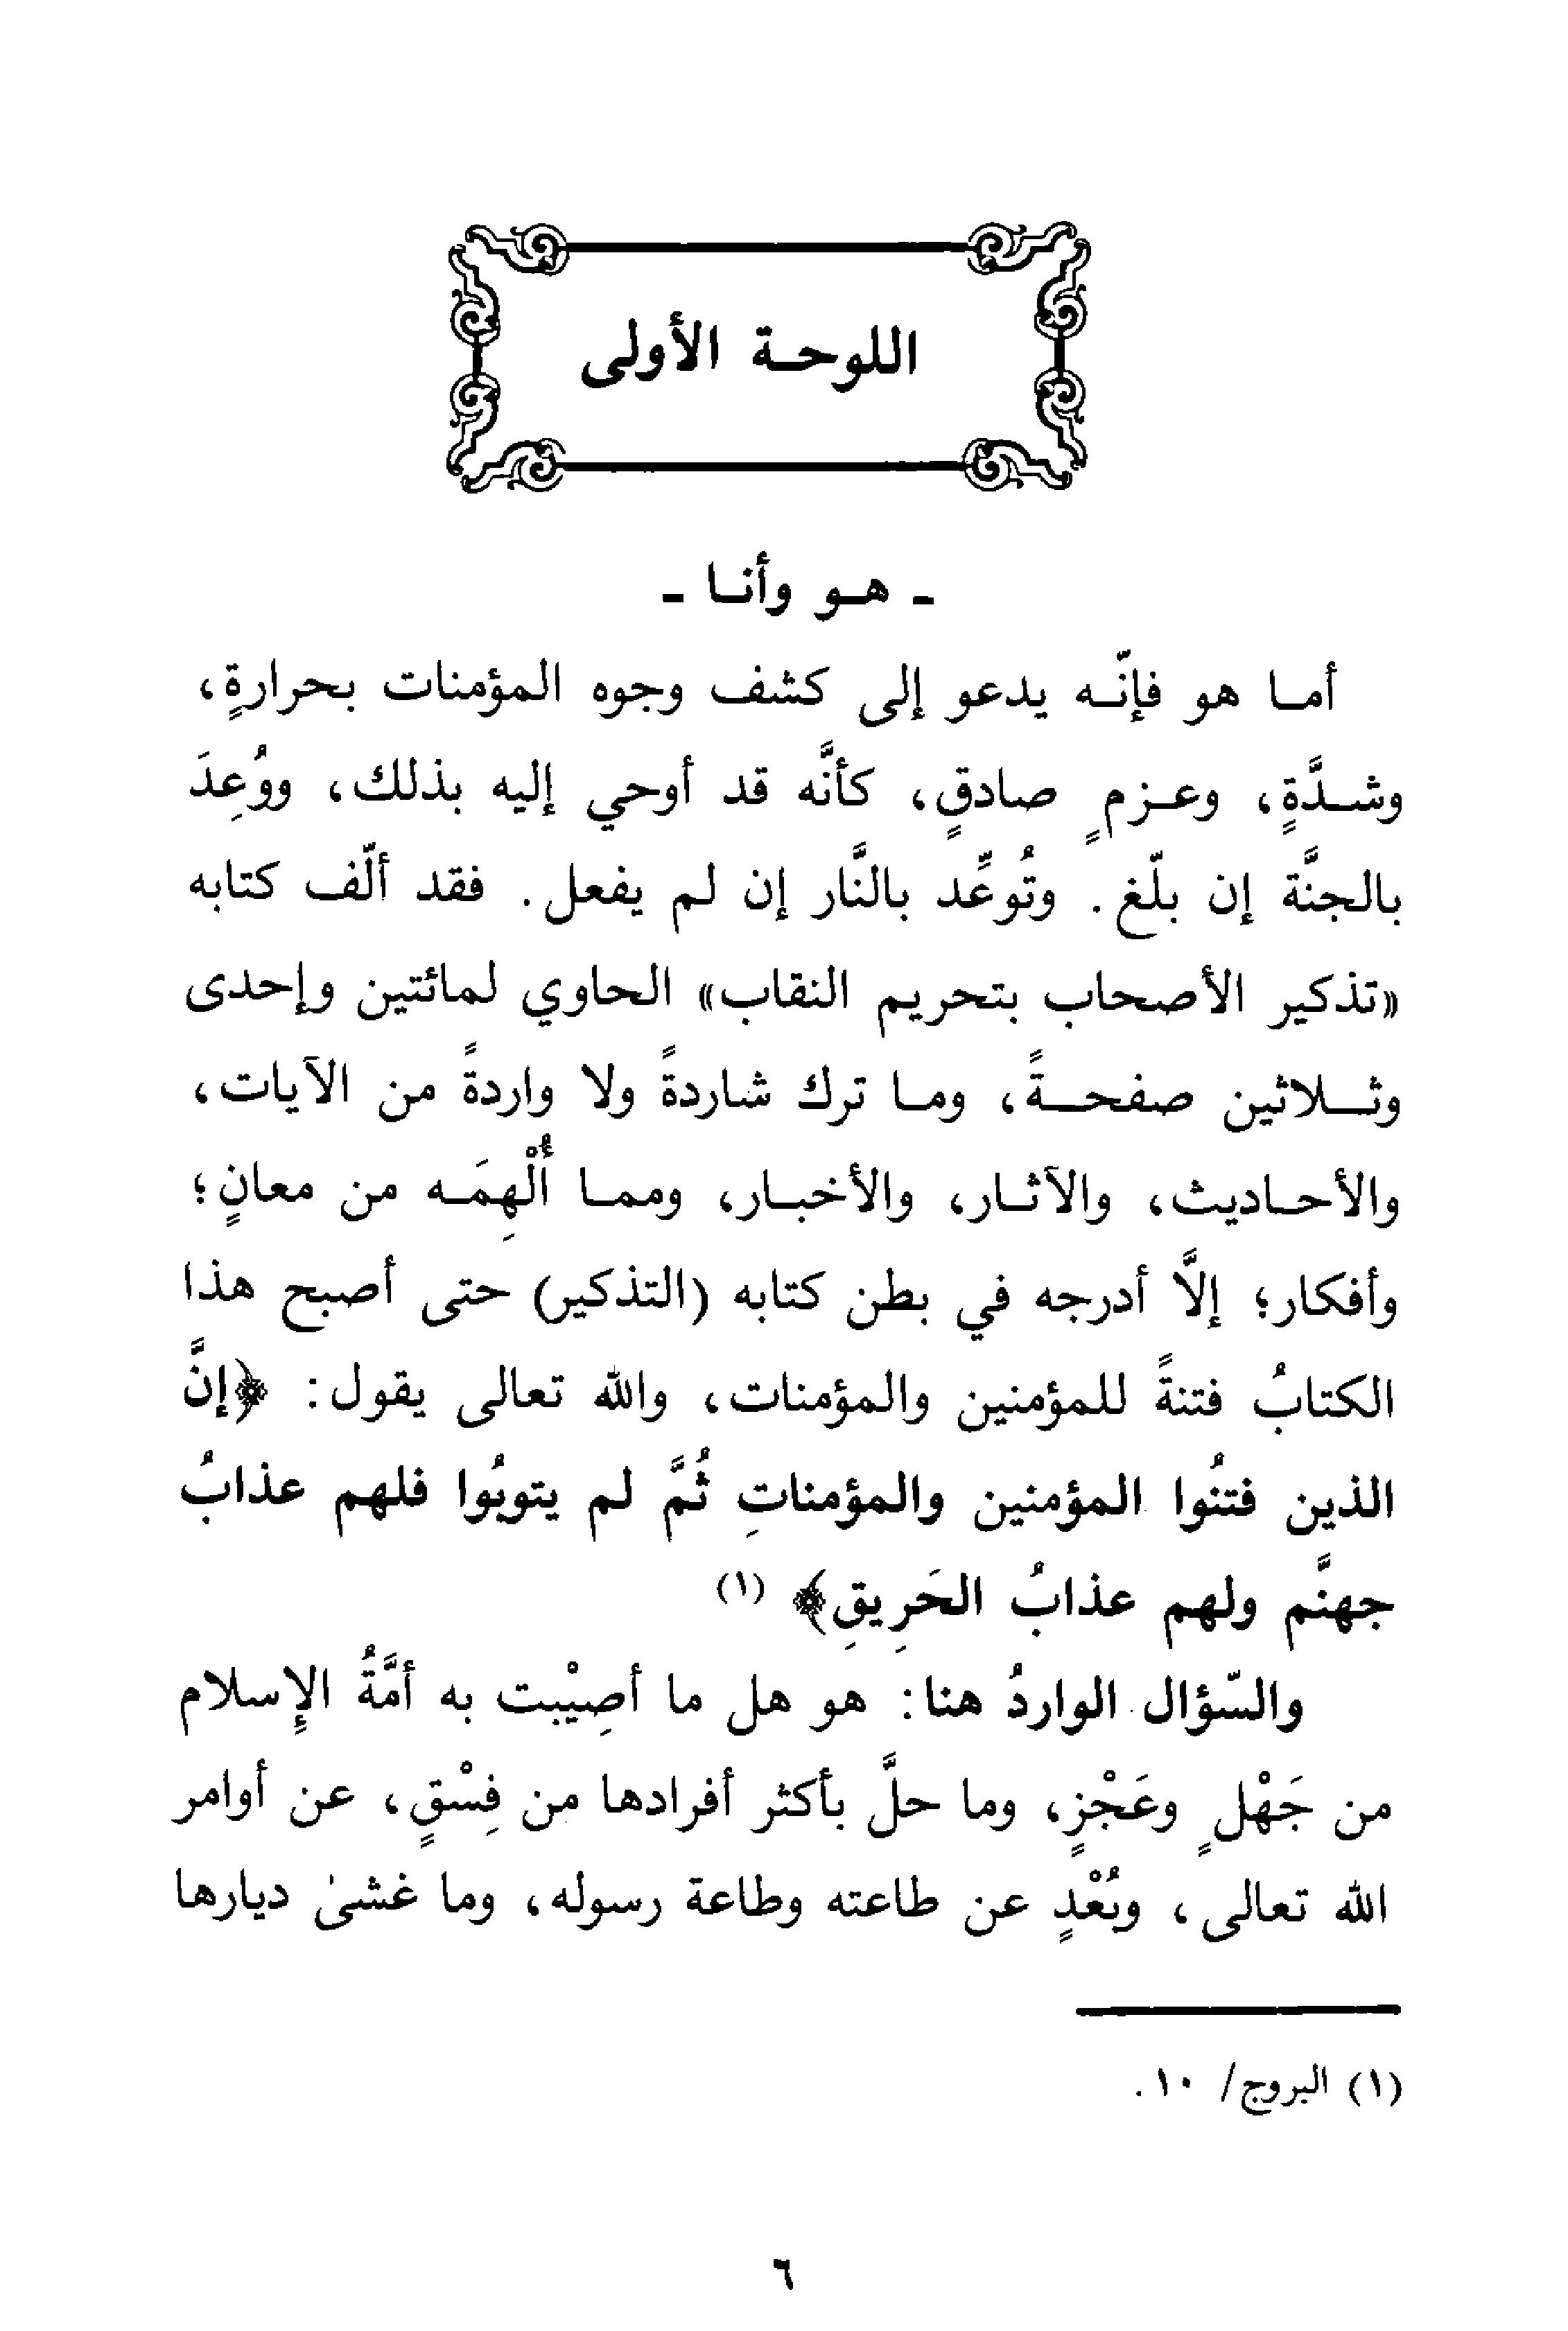 اللوحة الأولى
- هو وأنا -
أما هو فإنّه يدعو إلى كشف وجوه المؤمنات بحرارةٍ،
وشدَّةٍ، وعزمٍ صادقٍ، كأنَّه قد أوحي إليه بذلك، ووُعِدَ
بالجنَّة إن بلّغ. وتُوعِّد بالنَّار إن لم يفعل. فقد ألّف كتابه
«تذكير الأصحاب بتحريم النقاب» الحاوي لمائتين وإحدى
وثلاثين صفحةً، وما ترك شاردةً ولا واردةً من الآيات،
والأحاديث، والآثار، والأخبار، ومما أُلْهِمَه من معانٍ؛
وأفكار؛ إلَّا أدرجه في بطن كتابه (التذكير) حتى أصبح هذا
الكتابُ فتنةً للمؤمنين والمؤمنات، والله تعالى يقول: ﴿إنَّ
الذين فتنُوا المؤمنين والمؤمناتِ ثُمَّ لم يتوبُوا فلهم عذابُ
جهنَّم ولهم عذابُ الحَرِيقِ﴾ (١)
والسّؤال الواردُ هنا: هو هل ما أصِيْبت به أمَّةُ الإسلام
من جَهْلٍ وعَجْزٍ، وما حلَّ بأكثر أفرادها من فِسْقٍ، عن أوامر
الله تعالى، وبُعْدٍ عن طاعته وطاعة رسوله، وما غشىٰ ديارها
(١) البروج/ ١٠.
٦